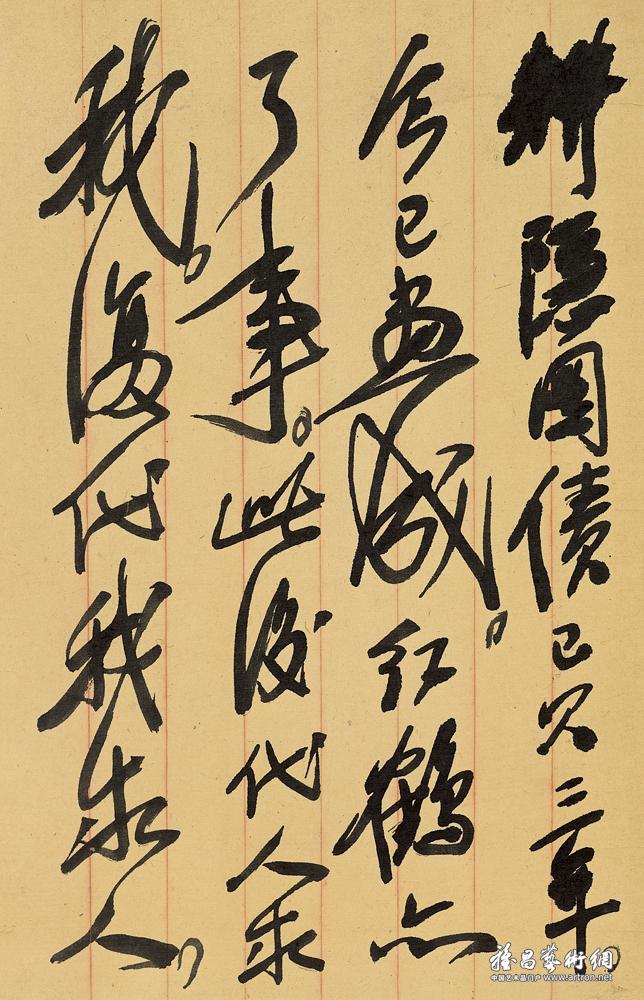 耕隱圖債已久三年,
今已畫成。红鶴亦
了事。此後代人求
我。復代我求人,
雅昌藝術網
中国艺术品门户 www.artron.net